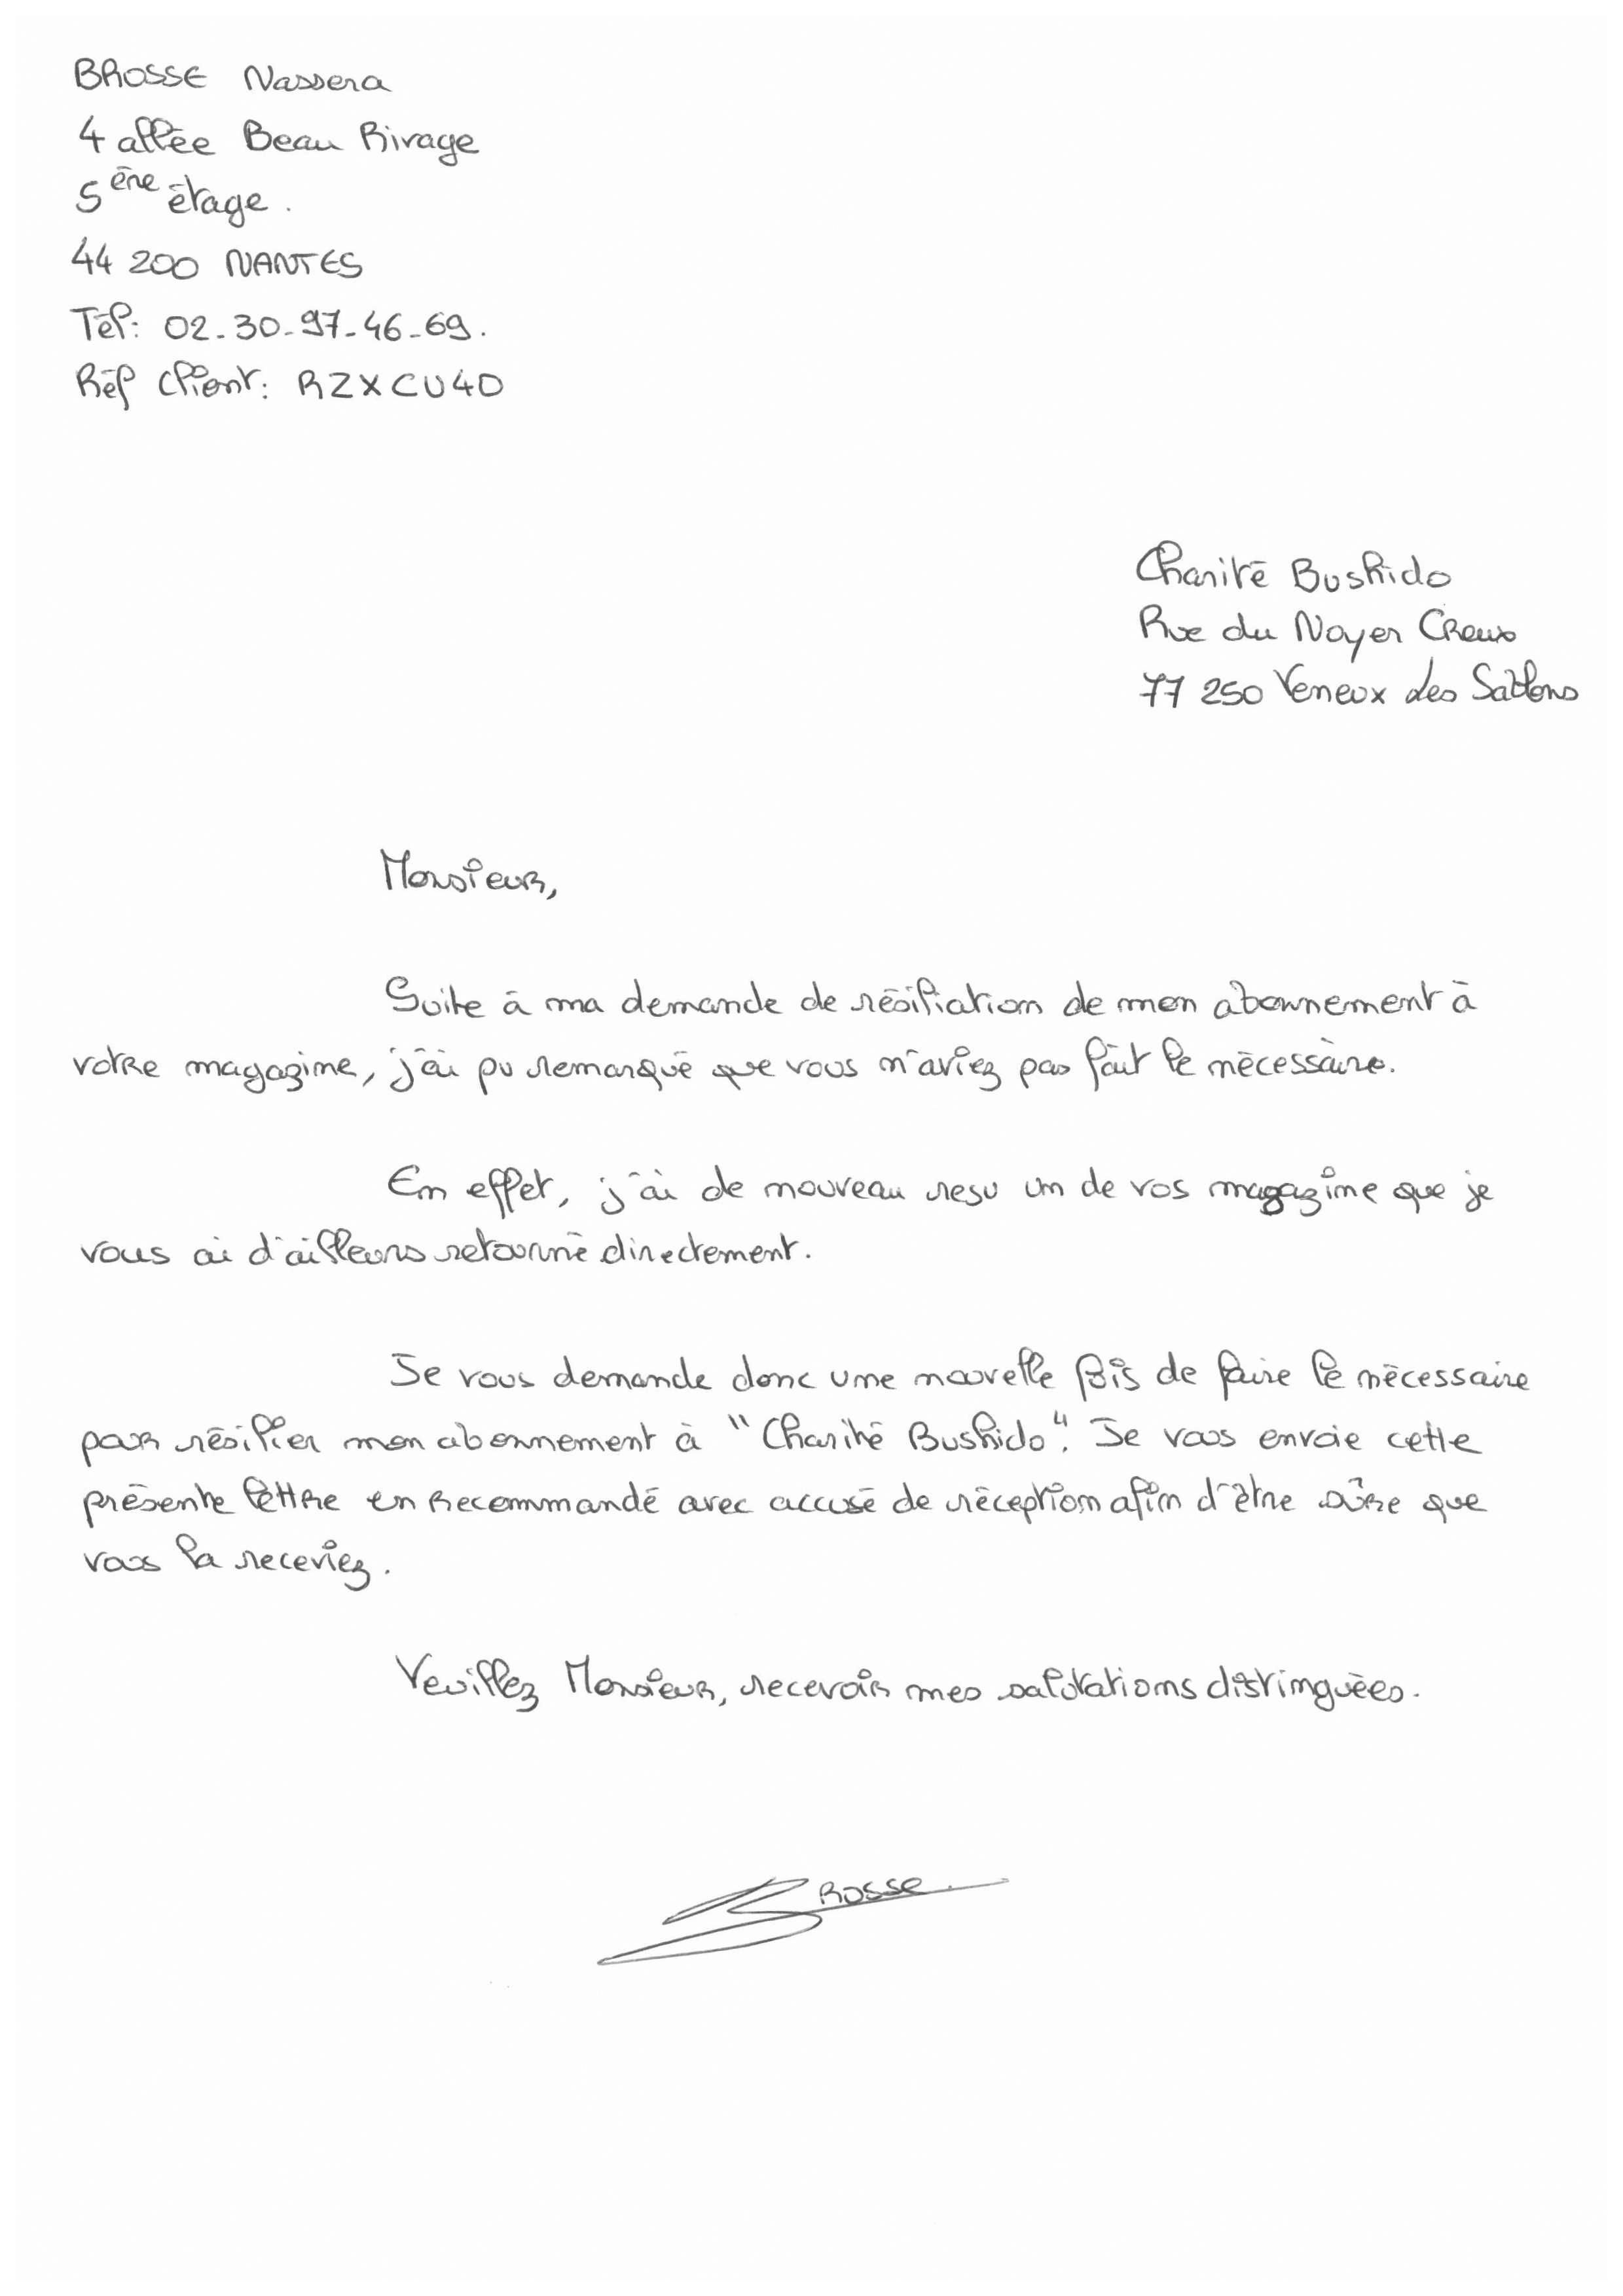 BROSSE Nassera
4 allée Beau Rivage
5ème étage.
44 200 NANTES
Tél: 02-30-97-46-69.
Réf client: RZXCU40
Charité Bushido
Rue du Noyer Creux
77 250 Veneux les Sablons
Monsieur,
Suite à ma demande de résiliation de mon abonnement à
votre magazine, j'ai pu remarqué que vous n'aviez pas fait le nécessaire.
En effet, j'ai de nouveau resu un de vos magazine que je
vous ai d'ailleurs retourné directement.
Je vous demande donc une nouvelle fois de faire le nécessaire
pour résilier mon abonnement à "Charité Bushido". Je vous envoie cette
présente lettre en recommandé avec accusé de réception afin d'être sûre que
vous la receviez.
Veuillez Monsieur, recevoir mes salutations distinguées.
BROSSE